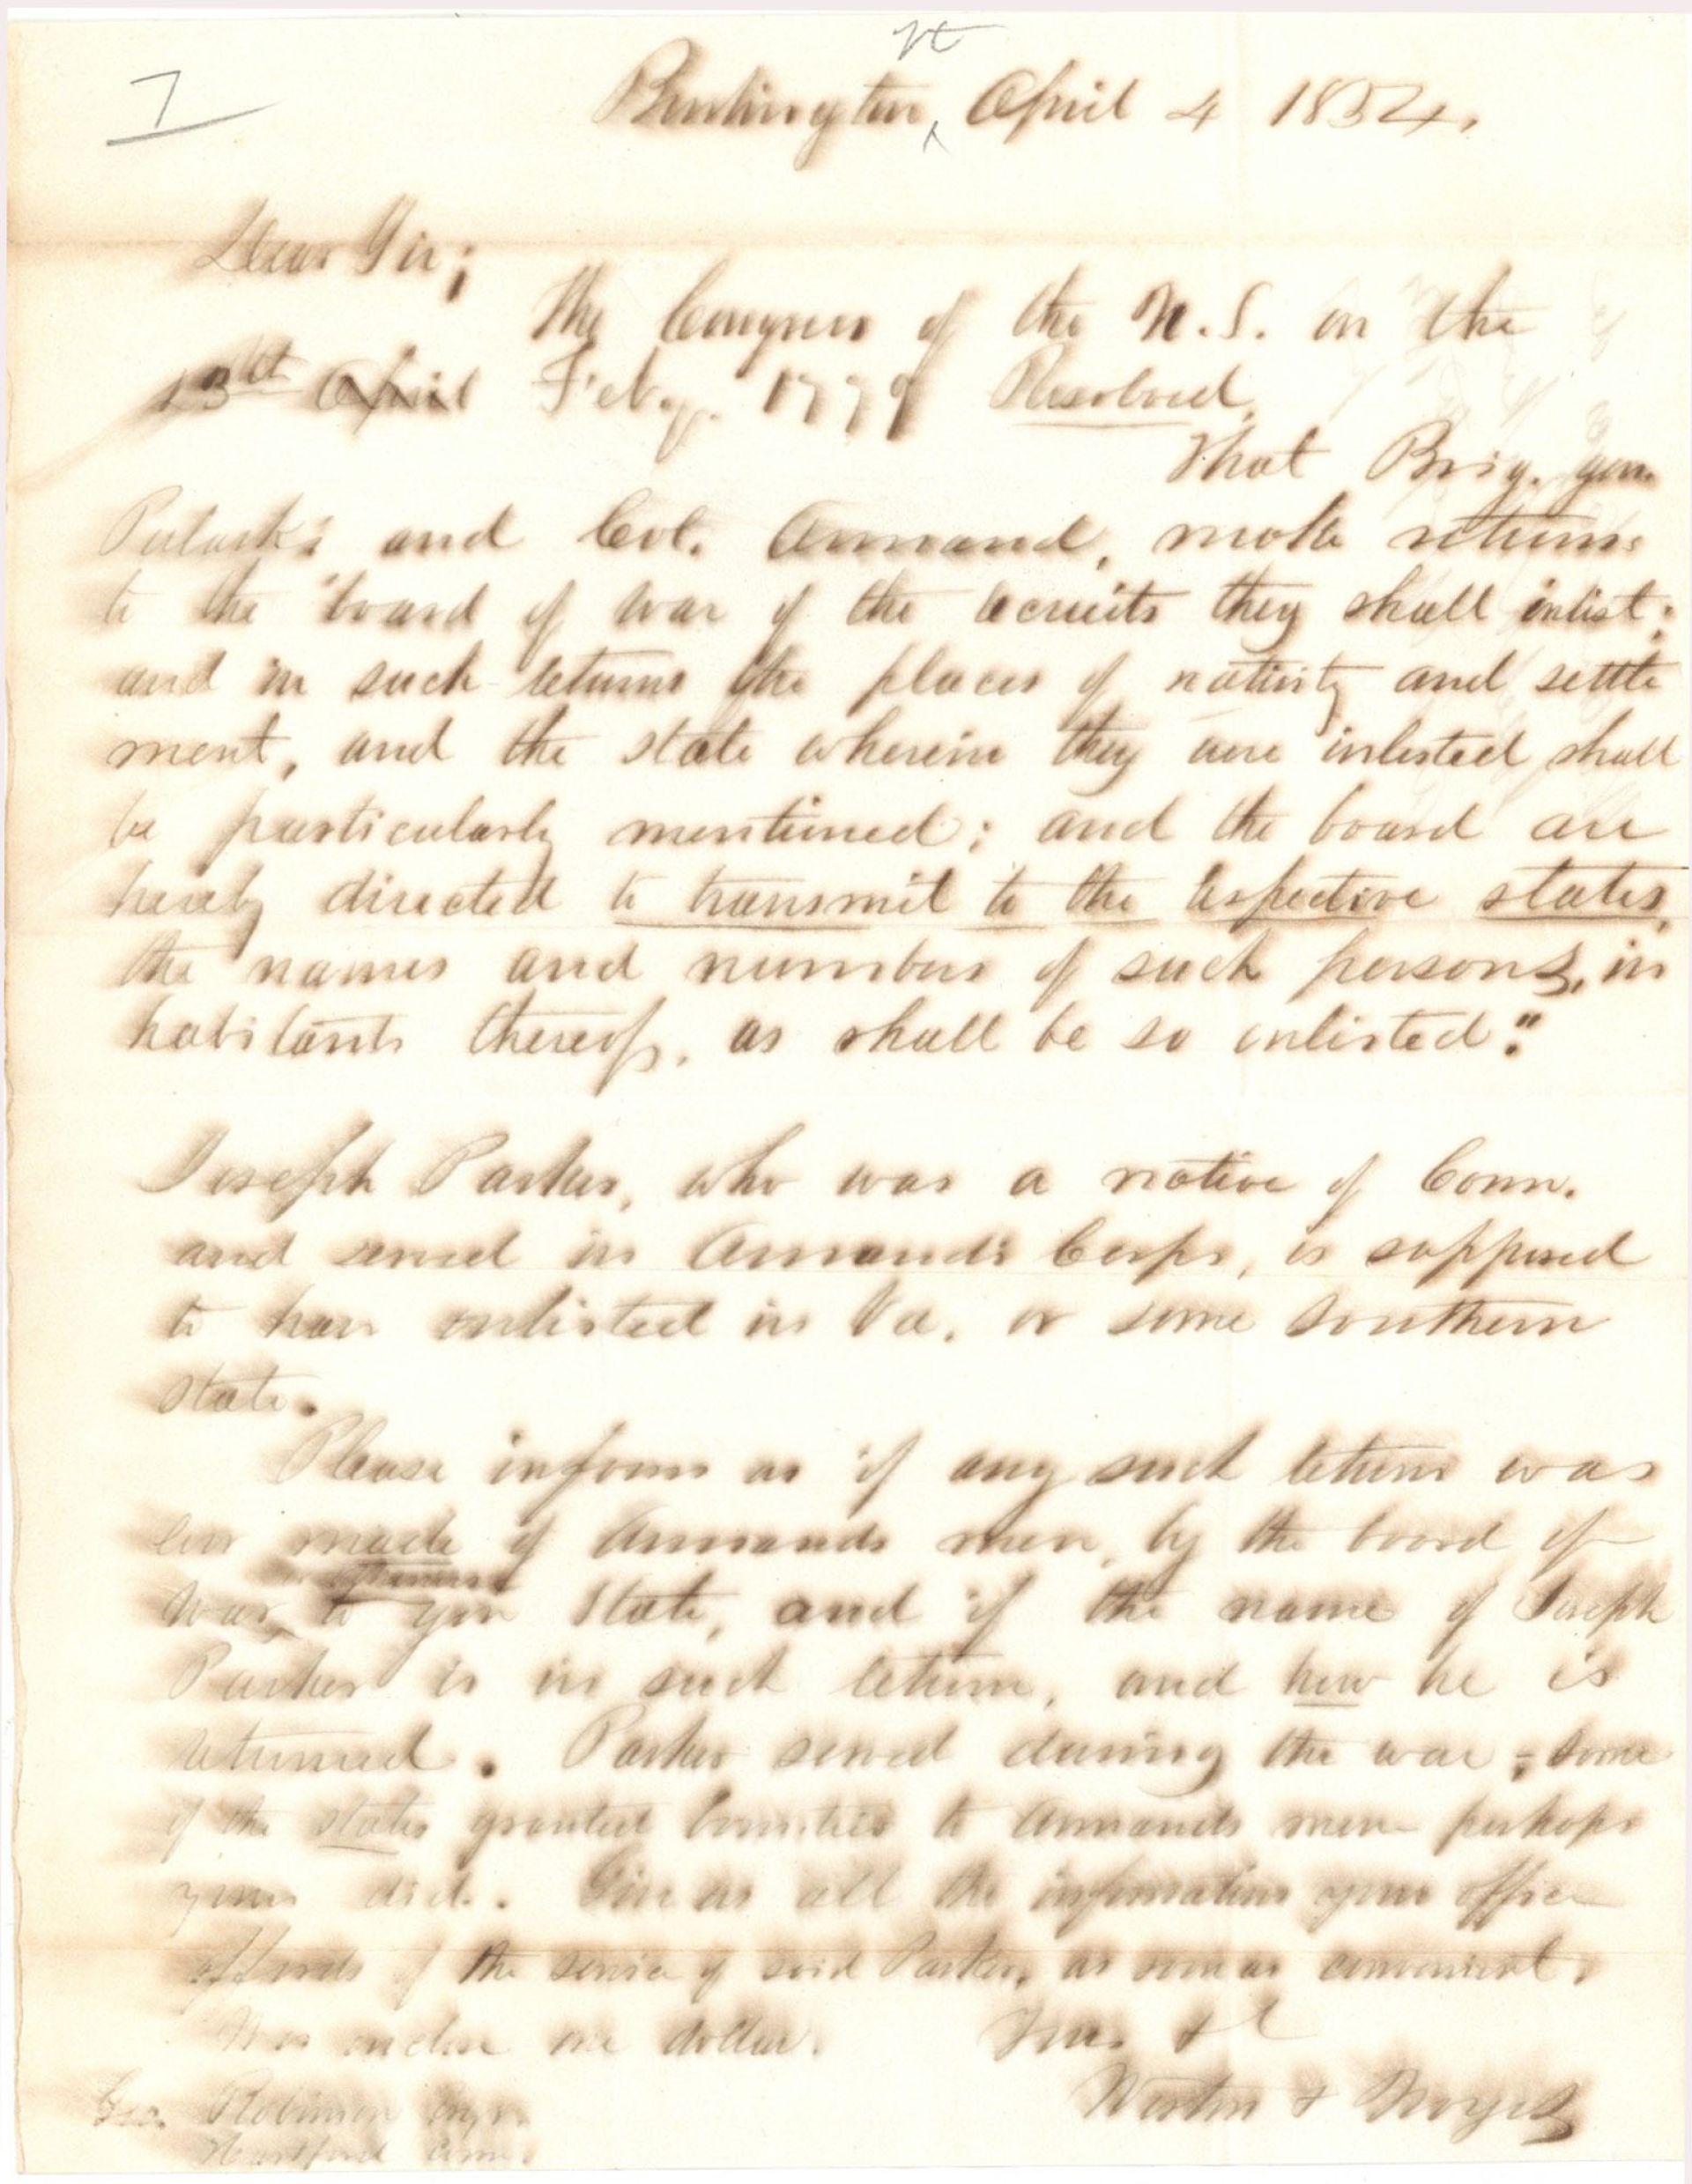 7
Vt
Burlington, April 4 1854.
Dear Sir;
The Congress of the U.S. on the
13th April Feby. 1779 Resolved,
That Brig. gen.
Pulaski and Col. Armand, make returns
to the board of war of the recruits they shall inlist;
and in such returns the places of nativity and settle
ment, and the state wherein they were inlisted shall
be particularly mentioned; and the board are
hereby directed to transmit to the respective states,
the names and numbers of such persons, in
habitants thereof, as shall be so enlisted."
Joseph Parker, who was a native of Conn.
and served in Armands Corps, is supposed
to have enlisted in Va. or some southern
state.
Please inform us if any such return was
ever made of Armands men, by the board of
war, to your State, and if the name of Joseph
Parker is in such return, and how he is
returned. Parker served during the war; some
of the states granted bounties to Armands men perhaps
yours did. Give us all the information your office
affords of the service of said Parker, as soon as convenient.
We enclose one dollar. Yours &c
Weston & Noyes
Geo. Robinson Esqr.
Hartford Conn.